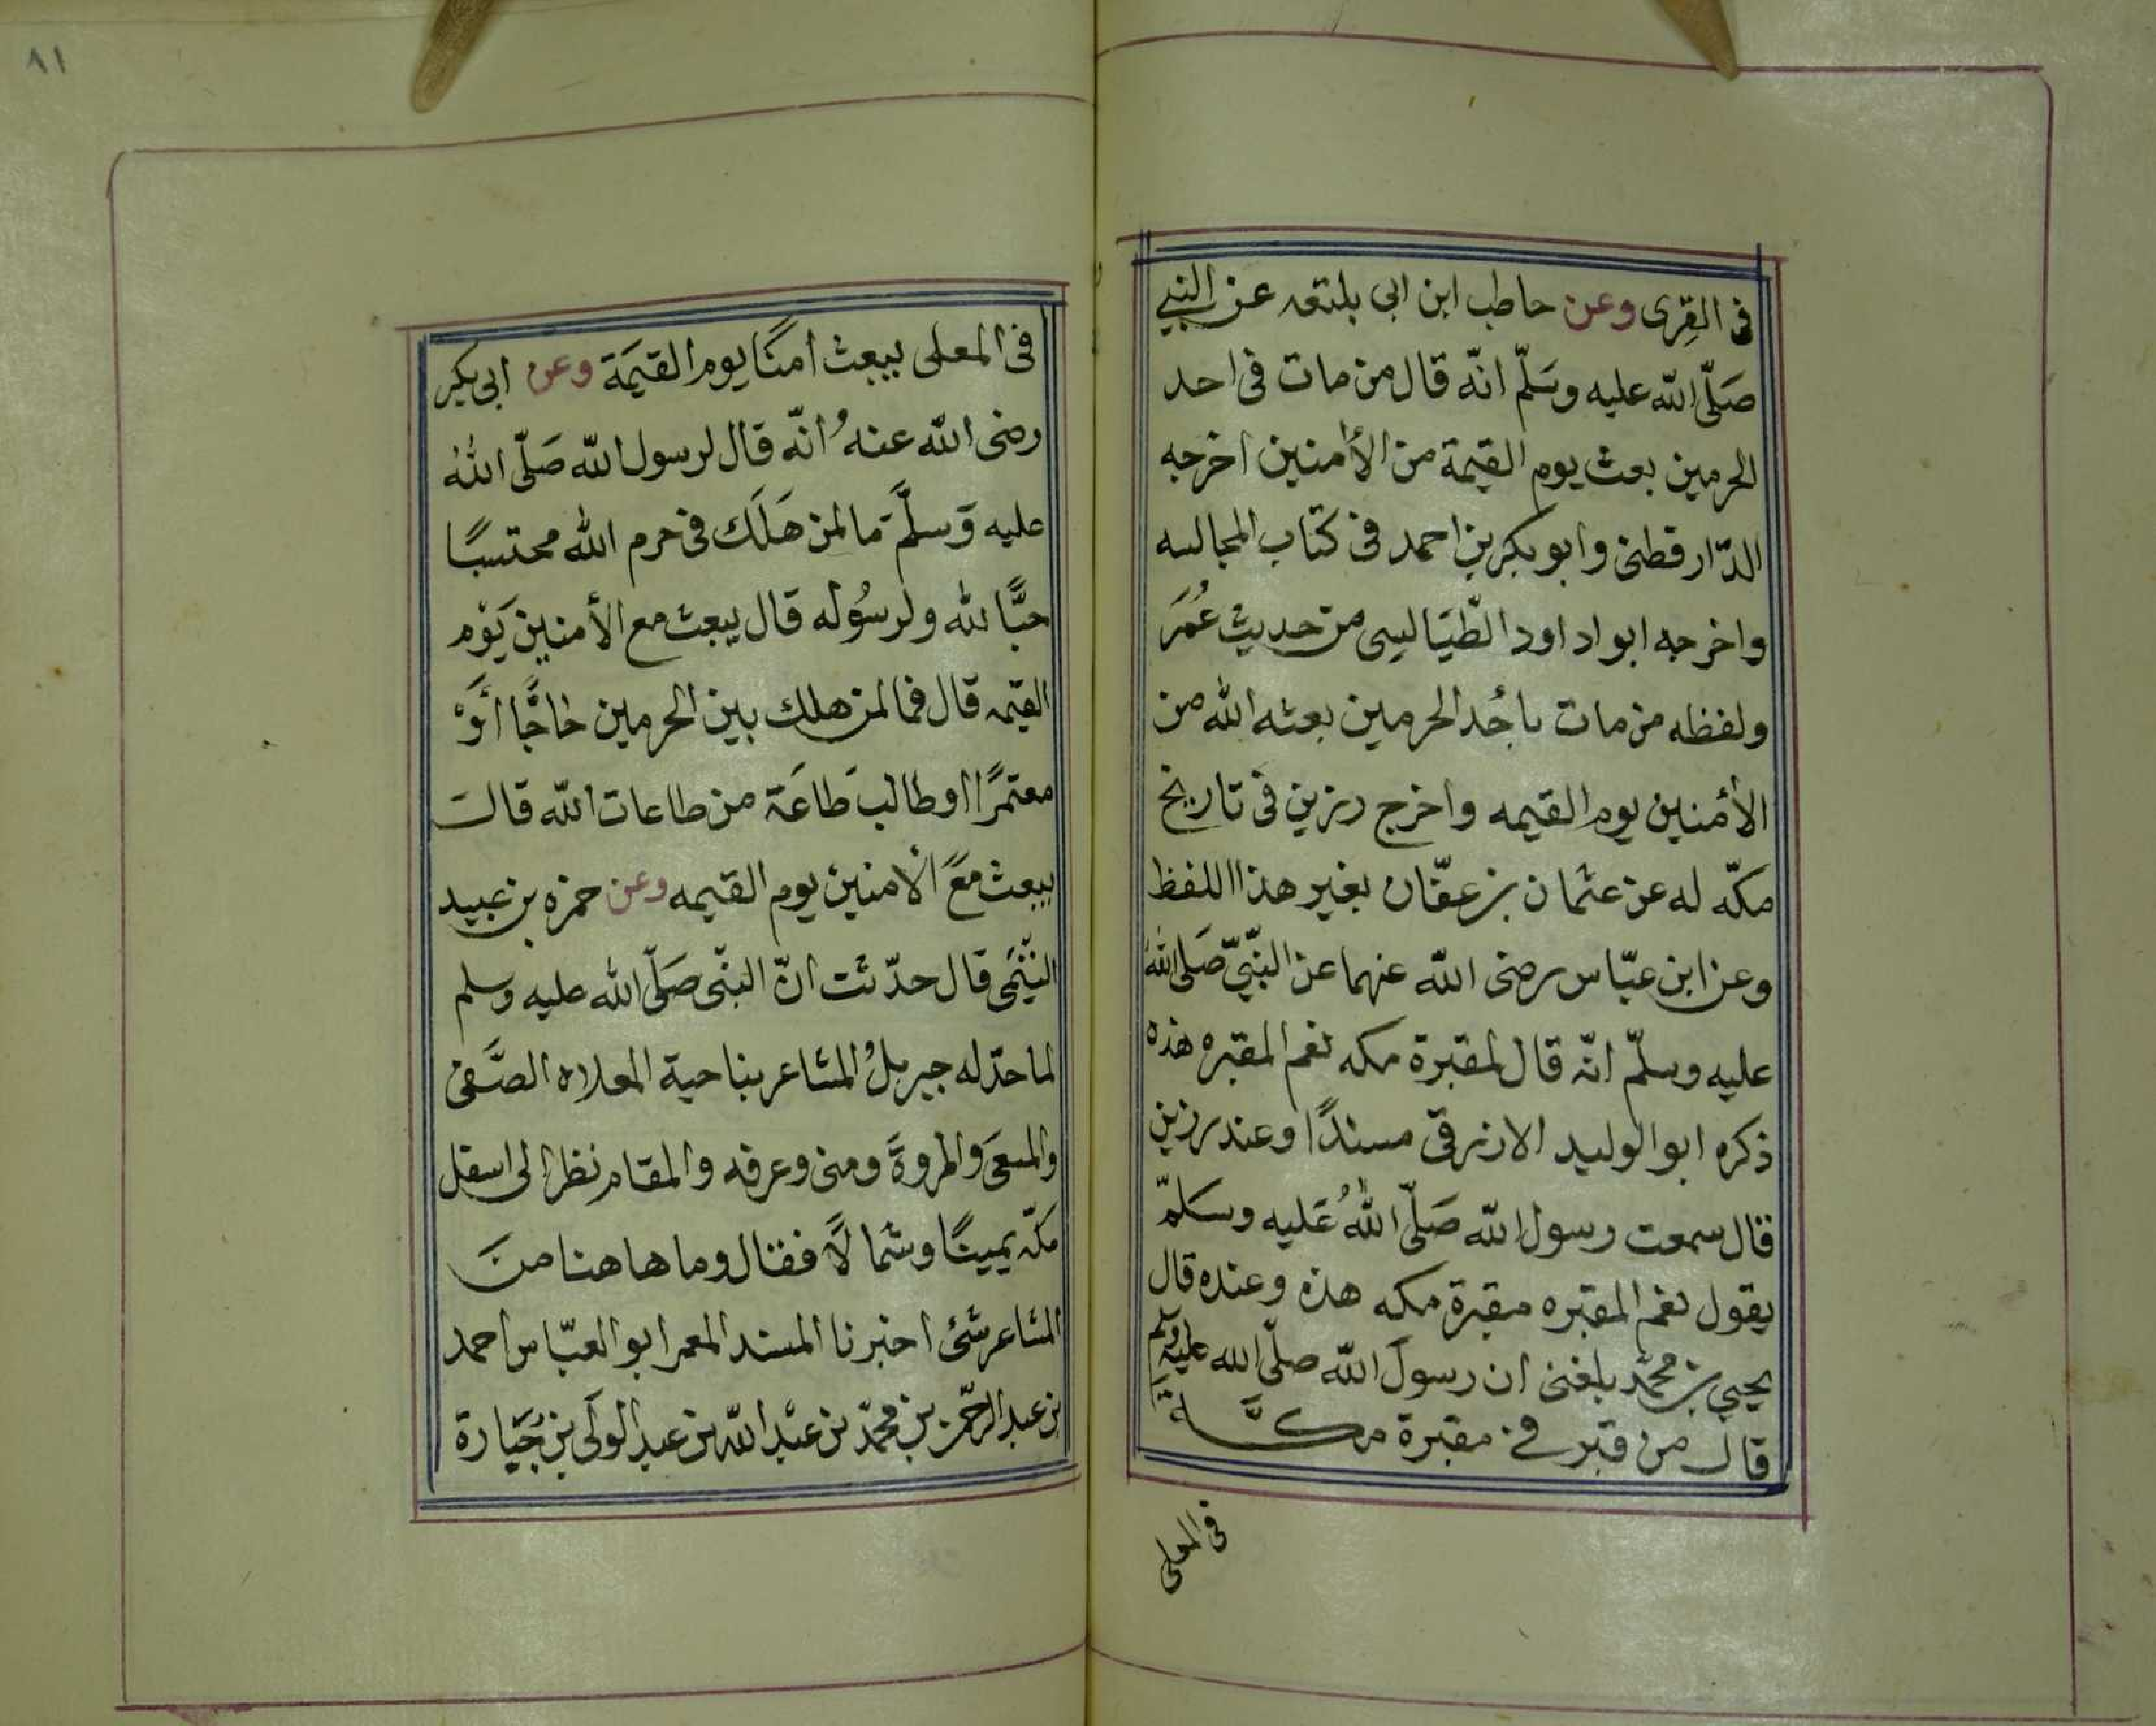 فى القِرى وعن حاطب ابن ابى بلتعه عن النبي
صَلّى الله عليه وسَلّم انّه قال من مات فى احد
الحرمين بعث يوم القيمة من الأمنين اخرجه
الدّارقطنى وابو بكر بن احمد فى كتاب المجالسه
واخرجه ابواد اود الطّيَالسى من حديث عُمَرَ
ولفظه من مات باحُد الحرمين بعثه الله من
الأمنين يوم القيمه واخرج رزين فى تاريخ
مكّه له عن عثمان بن عفّان بغير هذا اللفظ
وعن ابن عبّاس رضى الله عنهما عن النّبيّ صَلى اللهُ
عليه وسلّم انّه قال لمقبرة مكه نعم المقبره هذه
ذكره ابو الوليد الازرقى مسندًا وعند رزين
قال سمعت رسول الله صَلّى اللهُ عَليه وسَلمّ
يقول نعم المقبره مقبرة مكه هذه وعنده قال
يحيى بن محمّد بلغنى ان رسولَ الله صلّى الله عليه وسلم
قال من قبر فى مقبرة مكَّة
فى المعلى
٨١
فى المعلى يبعث امنًا يوم القيَمة وعن ابى بكر
رضى الله عنهُ انّه قال لرسول الله صَلّى اللهُ
عليه وَسلَّمَ مَا لمن هَلَك فى حرم الله محتسبًا
حبًّا لله ولرسُوله قال يبعث مع الأمنين يَوْم
القيمه قال فما لمن هلك بين الحرمين حَاجًّا أَوْ
معتمرًا او طالبَ طَاعَة من طاعات الله قالَ
يبعث معَ الأمنين يوم القيمه وعن حمزه بن عبيد
التّيْمَى قال حدّثت انّ النبّى صَلّى الله عليه وسلم
لما حدّ له جبريلُ المشاعر بناحية المعلاه الصَّفى
والمسعَى والمروَة ومنى وعرفه والمقام نظر الى اسفل
مكّه يمينًا وشمالًا فقال وما هاهنا منَ
المشاعر شئ اخبرنا المسند المعمر ابو العبّاس احمد
بن عبد الرحّمن بن محمّد بن عبْد الله بن عبد الولَى بن جُبَارة